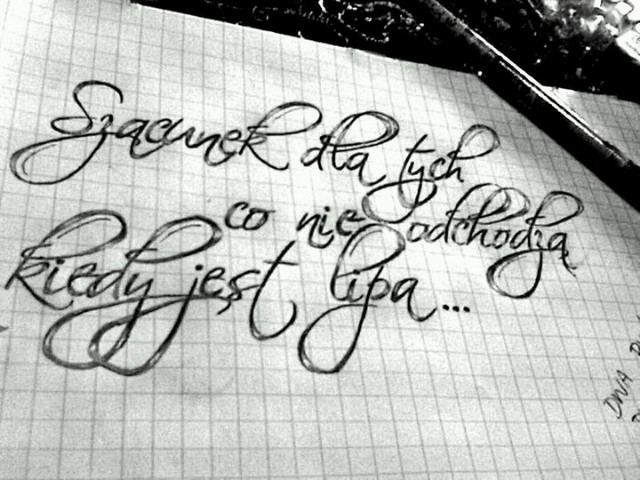 Szacunek dla tych
co nie odchodzą
kiedy jest lipa...
DNA